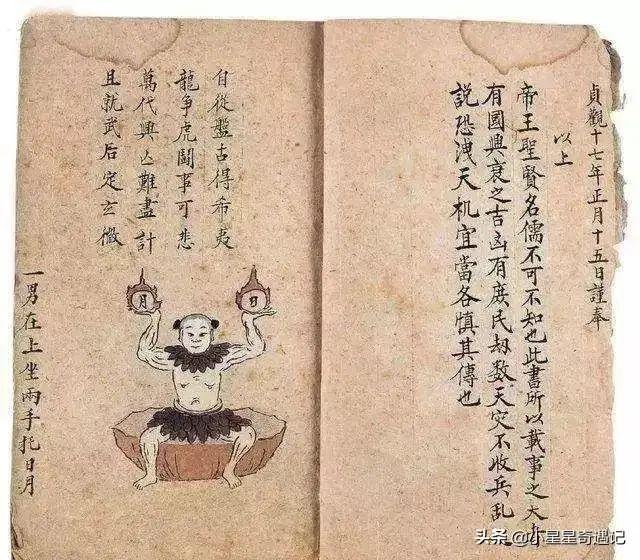 貞觀十七年正月十五日謹奉
以上
帝王聖賢名儒不可不知也此書所以載事之大
有國興衰之吉凶有庶民劫数天灾不收兵乱
説恐洩天机宜當各慎其傳也
自從盤古得希夷
龍争虎鬪事可悲
萬代興亡難盡計
且就武后定玄微
日
月
一男在上坐兩手托日月
头条 @小星星奇遇记